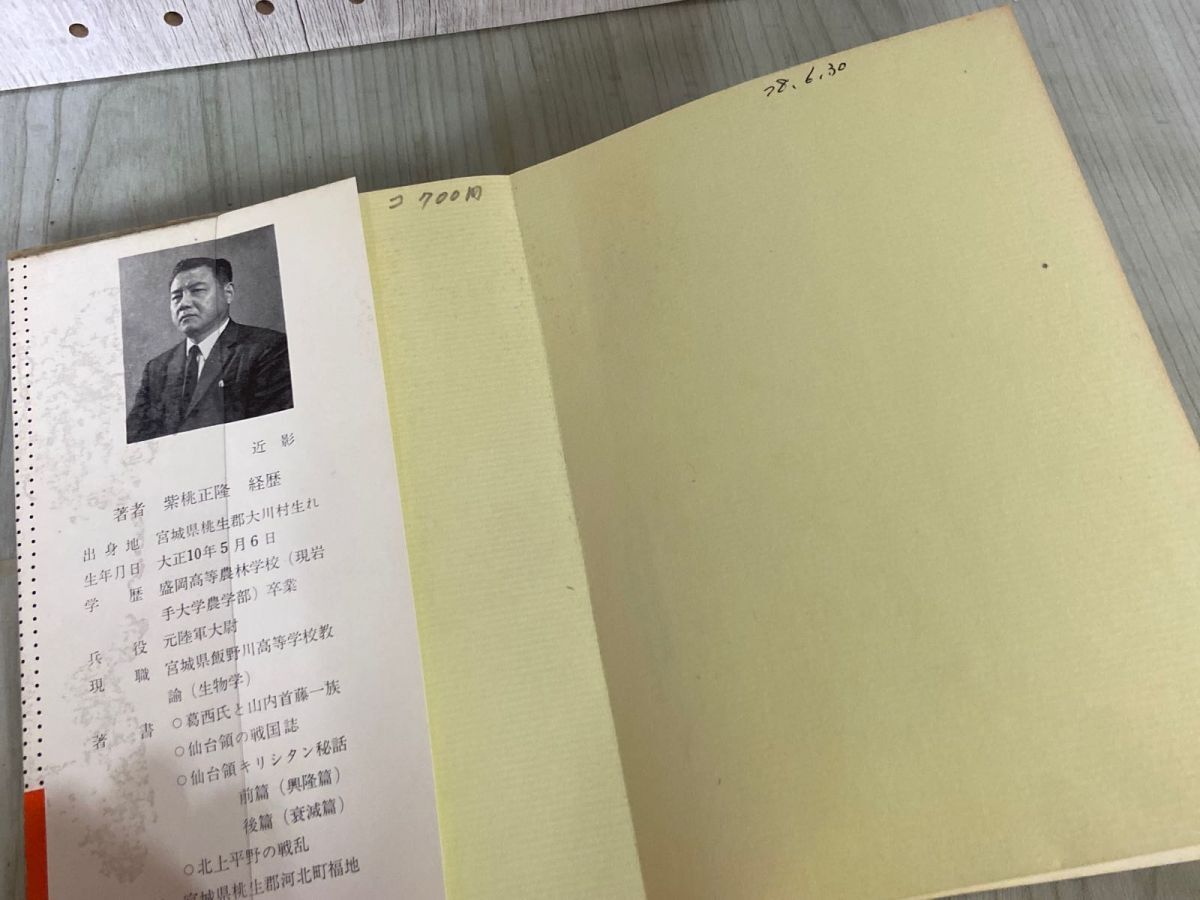 '78.6.30
コ 700円
近影
著者 紫桃正隆 経歴
出身地 宮城県桃生郡大川村生れ
生年月日 大正10年5月6日
学歴 盛岡高等農林学校（現岩
手大学農学部）卒業
兵役 元陸軍大尉
現職 宮城県飯野川高等学校教
諭（生物学）
著書 ○葛西氏と山内首藤一族
○仙台領の戦国誌
○仙台領キリシタン秘話
前篇（興隆篇）
後篇（衰滅篇）
○北上平野の戦乱
宮城県桃生郡河北町福地